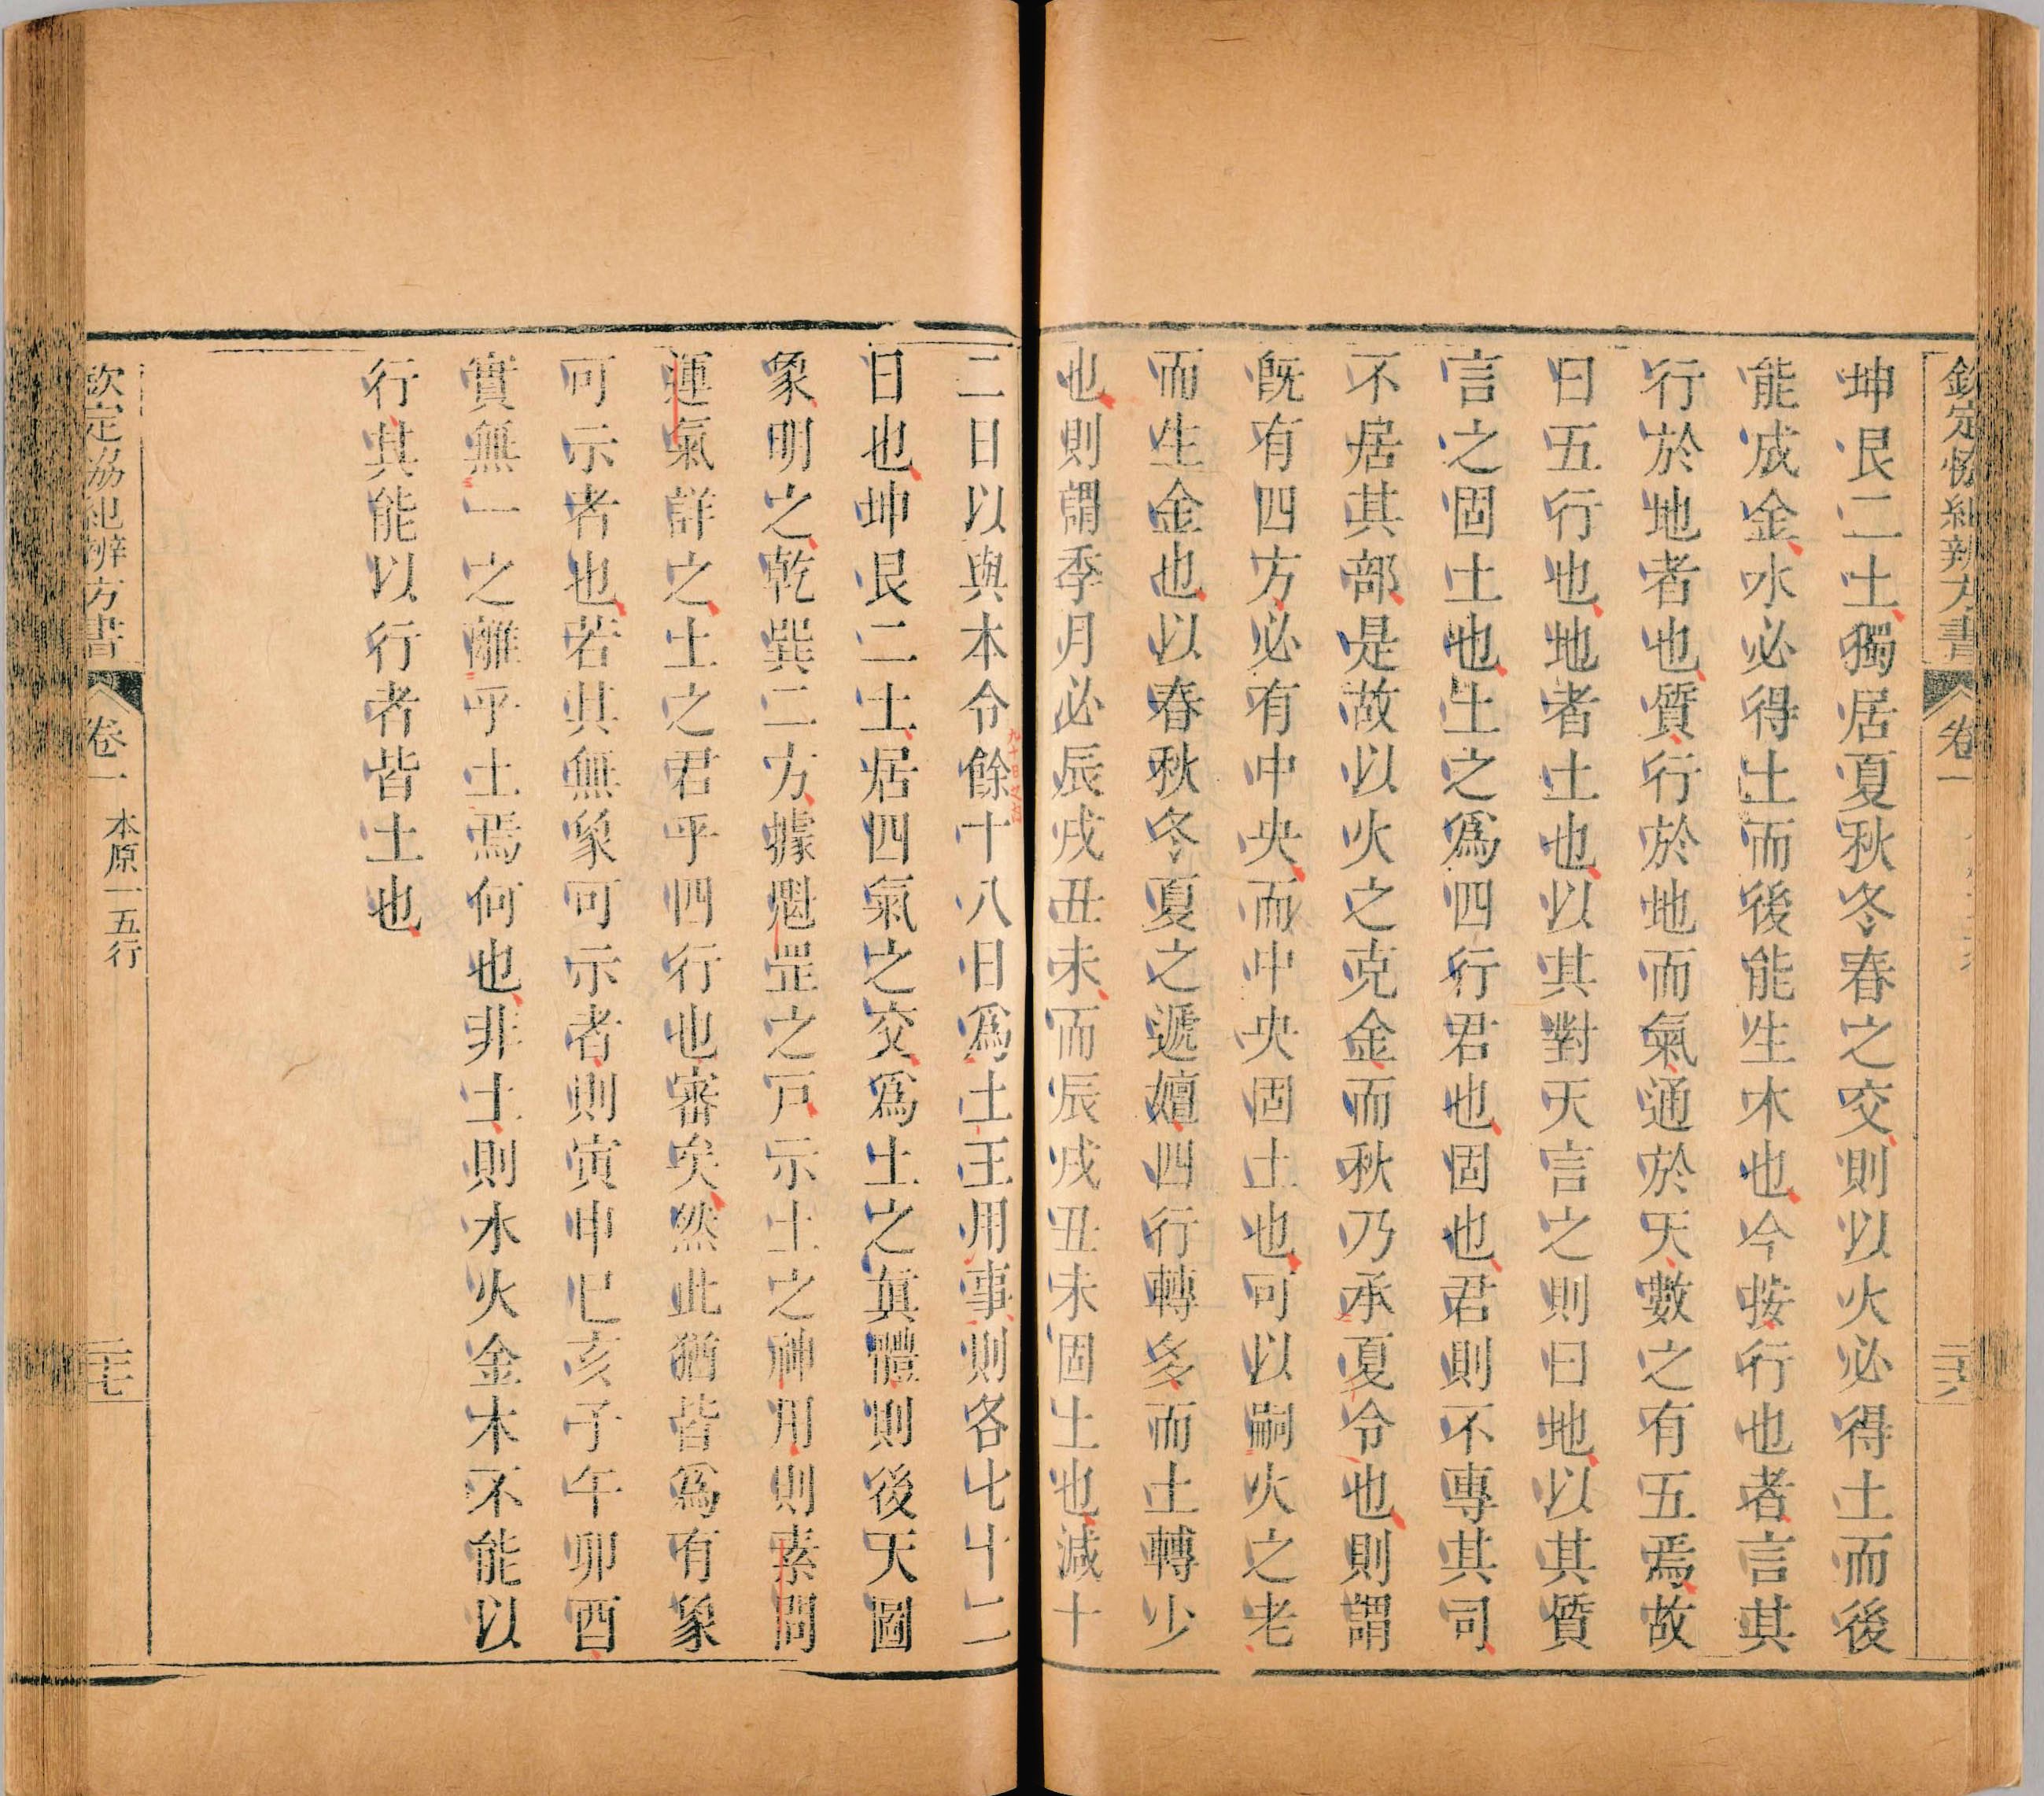 欽定協紀辨方書 卷一 二十六
坤艮二土獨居夏秋冬春之交則以火必得土而後
能成金水必得土而後能生木也今按行也者言其
行於地者也質行於地而氣通於天數之有五焉故
曰五行也地者土也以其對天言之則曰地以其質
言之固土也土之爲四行君也固也君則不專其司
不居其部是故以火之克金而秋乃承夏令也則謂
旣有四方必有中央而中央固土也可以嗣火之老
而生金也以春秋冬夏之遞嬗四行轉多而土轉少
也則謂季月必辰戌丑未而辰戌丑未固土也減十
二日以與本令餘十八日爲土王用事則各七十二
日也坤艮二土居四氣之交爲土之眞體則後天圖
象明之乾巽二方據魁罡之戸示土之神用則素問
運氣詳之土之君乎四行也審矣然此猶皆爲有象
可示者也若其無象可示者則寅申巳亥子午卯酉
實無一之離乎土焉何也非土則水火金木不能以
行其能以行者皆土也
欽定協紀辨方書 卷一 本原一五行 二十七